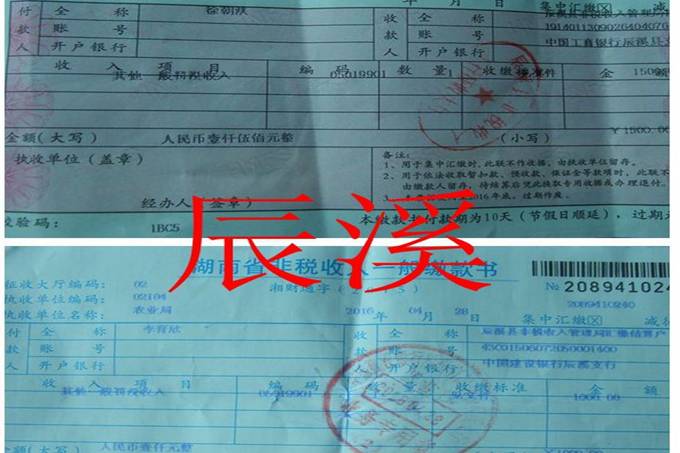 年 月 日 集中汇缴☒ 减
付 全 称 徐朝顺 收 全 称 辰溪县非税收入管理局
款 账 号 款 账 号 1914011309026404076
人 开户银行 人 开户银行 中国工商银行辰溪县支
收 入 项 目 编 码 数 量 收缴标准 金 额
其他一般罚没收入 05019901 1500
金额(大写) 人民币壹仟伍佰元整 (小写) ¥1500.00
执收单位(盖章)
经办人(签章)
备注:
1、用于集中汇缴时,此联不作收据,由执收单位留存。
2、用于依法收取暂扣款、预收款、保证金等款项时,此联
由缴款人留存,待结算后凭此换取专用收据或办理退付。
2016年底,过期作废。
校验码: 1BC5 本缴款书付款期为10天(节假日顺延),过期
辰溪
湖南省非税收入一般缴款书
征收大厅编码: 02 湘财通字(2015) № 2089410240
执收单位编码: 02104 2089410240
执收单位名称: 农业局 2016 年 04 月 28 日 集中汇缴☒ 减
付 全 称 李育欣 收 全 称 辰溪县非税收入管理局汇缴结算户
款 账 号 款 账 号 43001506072050001400
人 开户银行 人 开户银行 中国建设银行辰溪支行
收 入 项 目 编 码 数 量 收缴标准 金
其他一般罚没收入 05019901 1000.00
金额(大写) 人民币壹仟元整